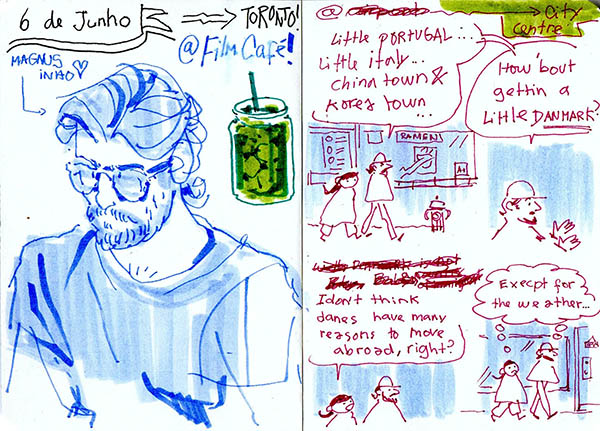 6 de Junho
TORONTO!
@ Film Café!
MAGNUS
@
City
centre
Little PORTUGAL...
Little italy...
china town &
Korea town
...
How 'bout
gettin a
Little DANMARK?
RAMEN
I dont think
danes have many
reasons to move
abroad, right?
Execpt for
the weather...